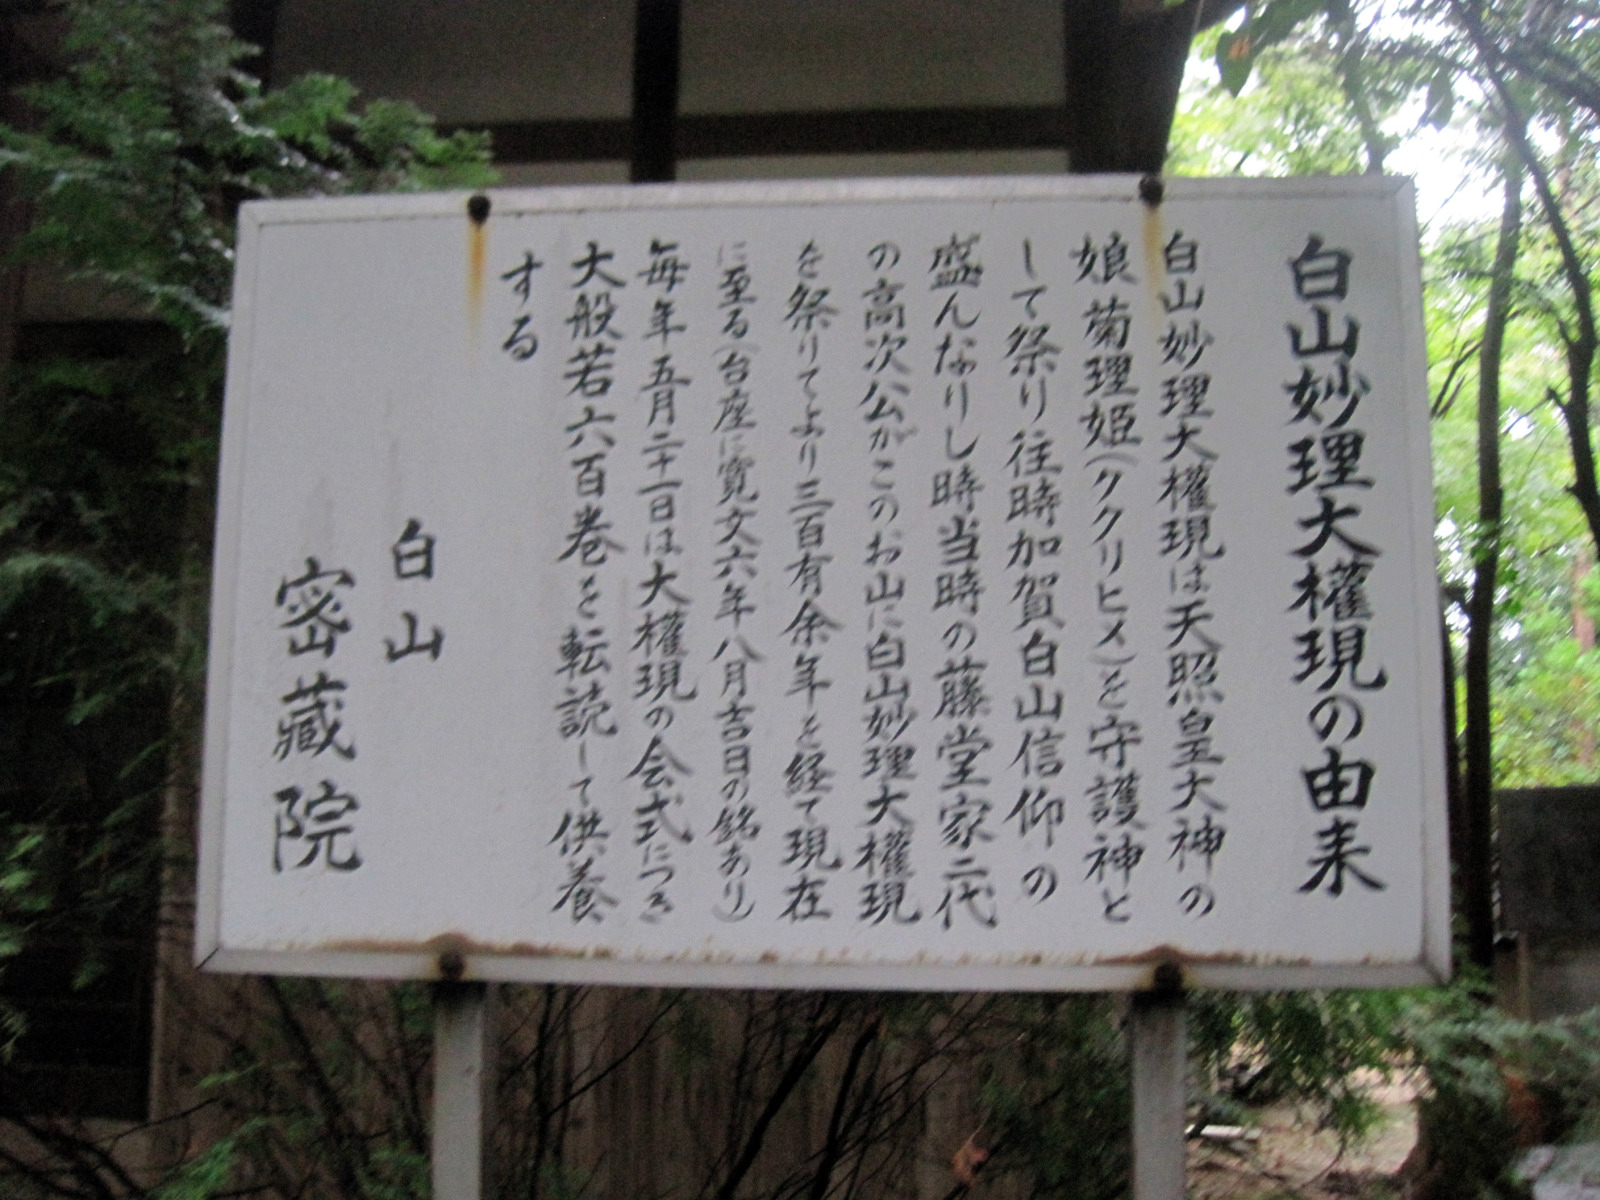 白山妙理大權現の由来
白山妙理大權現は天照皇大神の
娘菊理姫(ククリヒメ)を守護神と
して祭り往時加賀白山信仰の
盛んなりし時当時の藤堂家二代
の高次公がこのお山に白山妙理大權現
を祭りてより三百有余年を経て現在
に至る(台座に寛文六年八月吉日の銘あり)
毎年五月二十一日は大權現の会式につき
大般若六百巻を転読して供養
する
白山
密蔵院